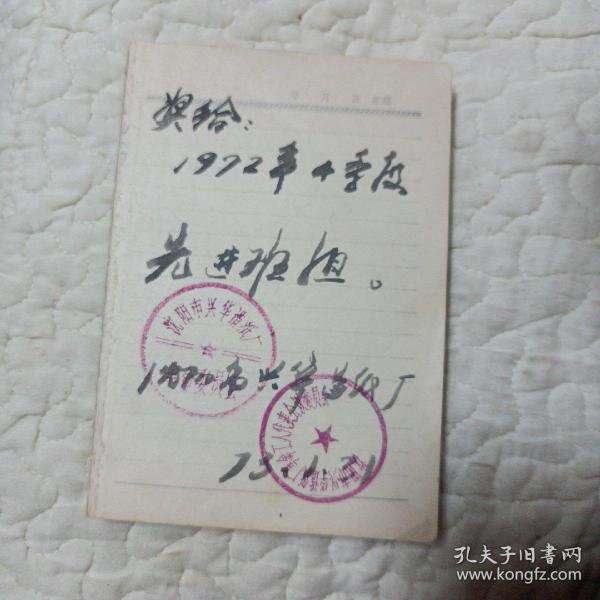 年 月 日
奖给：
1972年4季度
先进班组。
沈阳市兴华造纸厂
沈阳市兴华造纸厂
73.1.31
孔夫子旧书网
www.kongfz.com